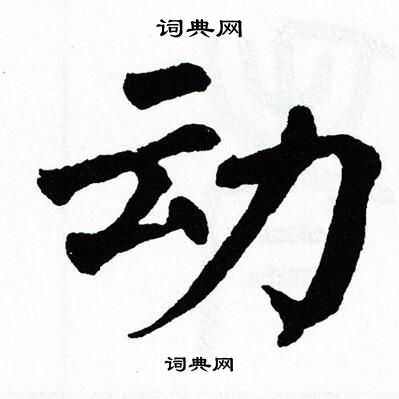 词典网
动
词典网